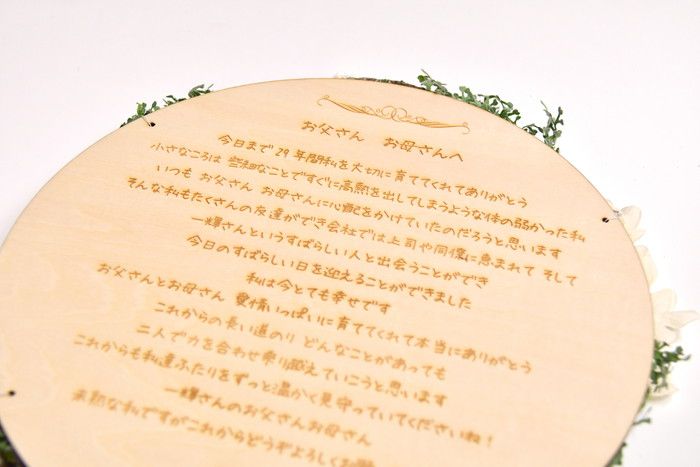 お父さん お母さんへ
今日まで 29年間私を大切に育ててくれてありがとう
小さなころは 些細なことですぐに高熱を出してしまうような体の弱かった私
いつも お父さん お母さんに心配をかけていたのだろうと思います
そんな私もたくさんの友達ができ会社では上司や同僚に恵まれて そして
一輝さんというすばらしい人と出会うことができ
今日のすばらしい日を迎えることができました
私は今とても幸せです
お父さんとお母さん 愛情いっぱいに育ててくれて本当にありがとう
これからの長い道のり どんなことがあっても
二人で力を合わせ乗り越えていこうと思います
これからも私達ふたりをずっと温かく見守っていてくださいね！
一輝さんのお父さんお母さん
未熟な私ですがこれからどうぞよろしくお